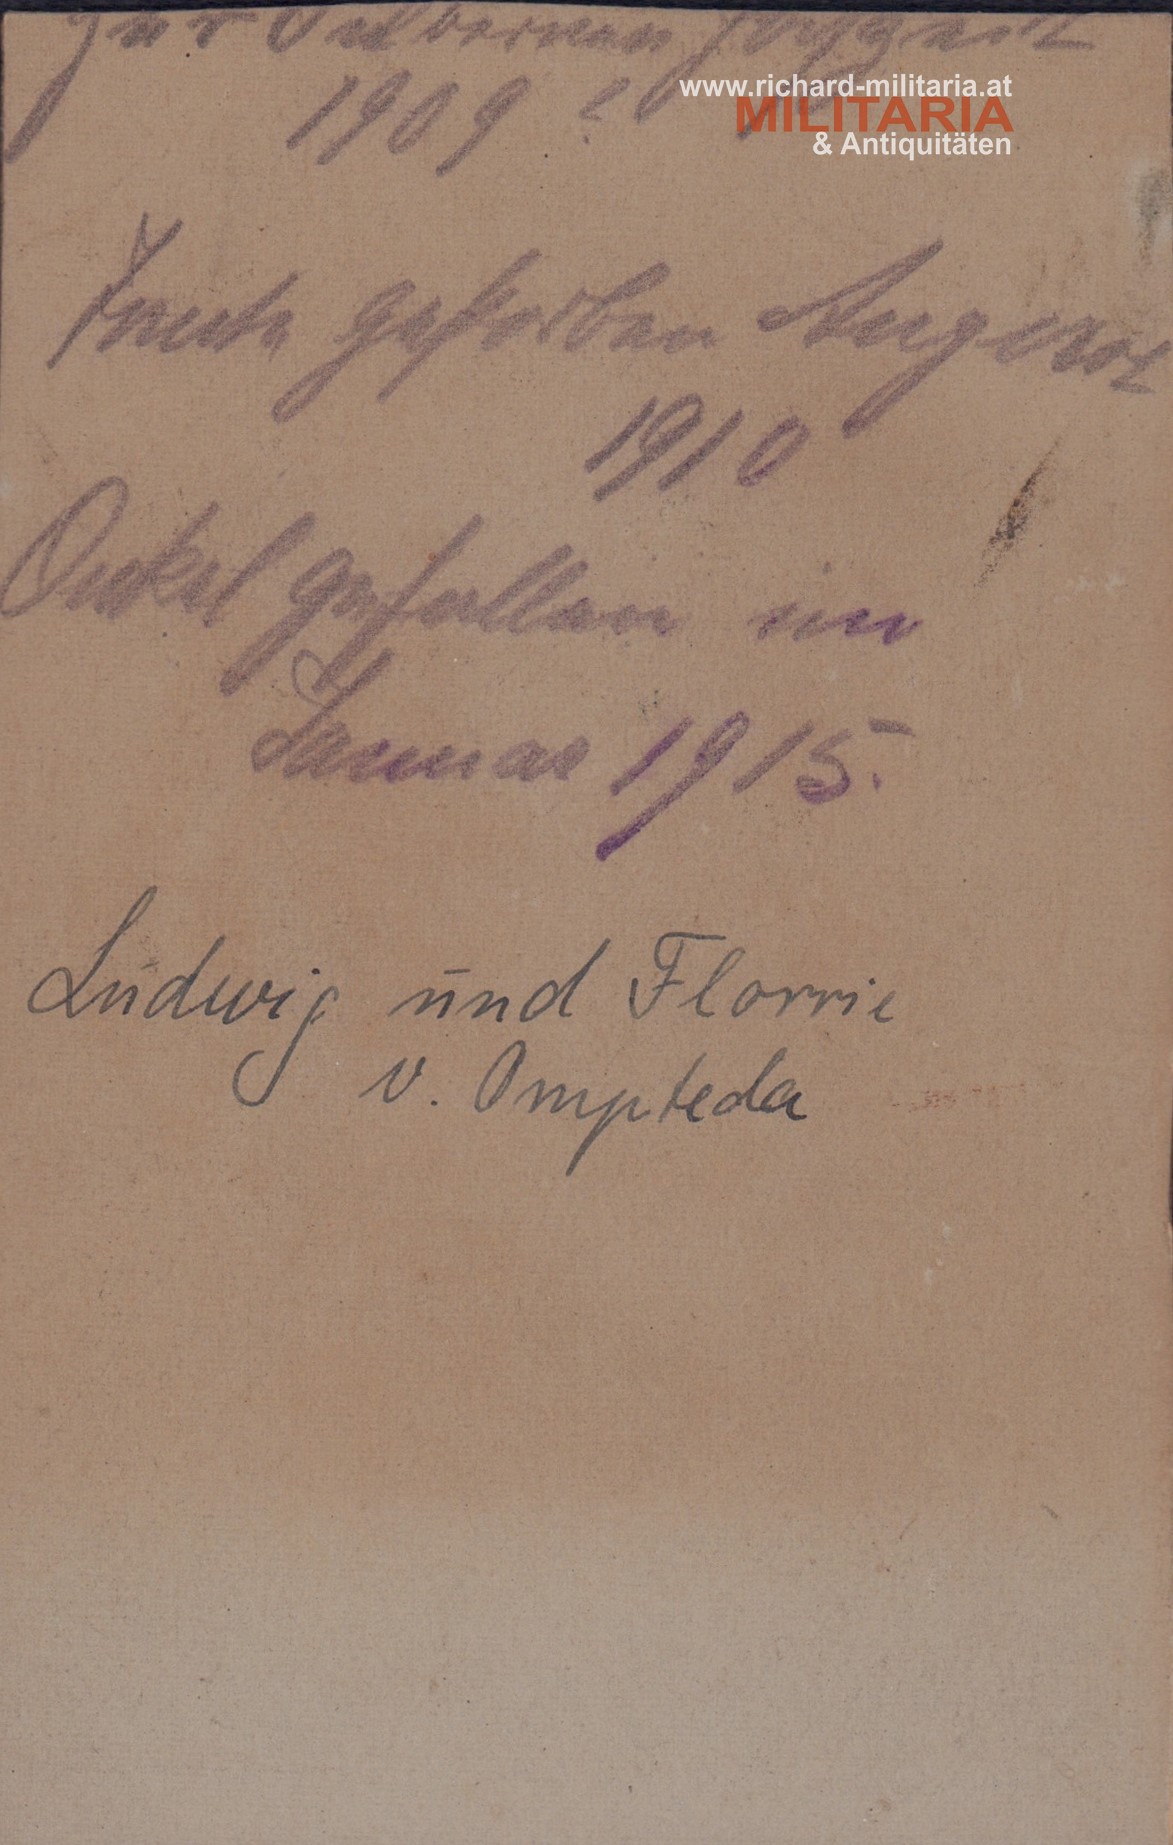 zur Silbernen Hochzeit
1909 ?
www.richard-militaria.at
MILITARIA
& Antiquitäten
Tante gestorben August
1910
Onkel gefallen im
Januar 1915.
Ludwig und Florrie
v. Ompteda